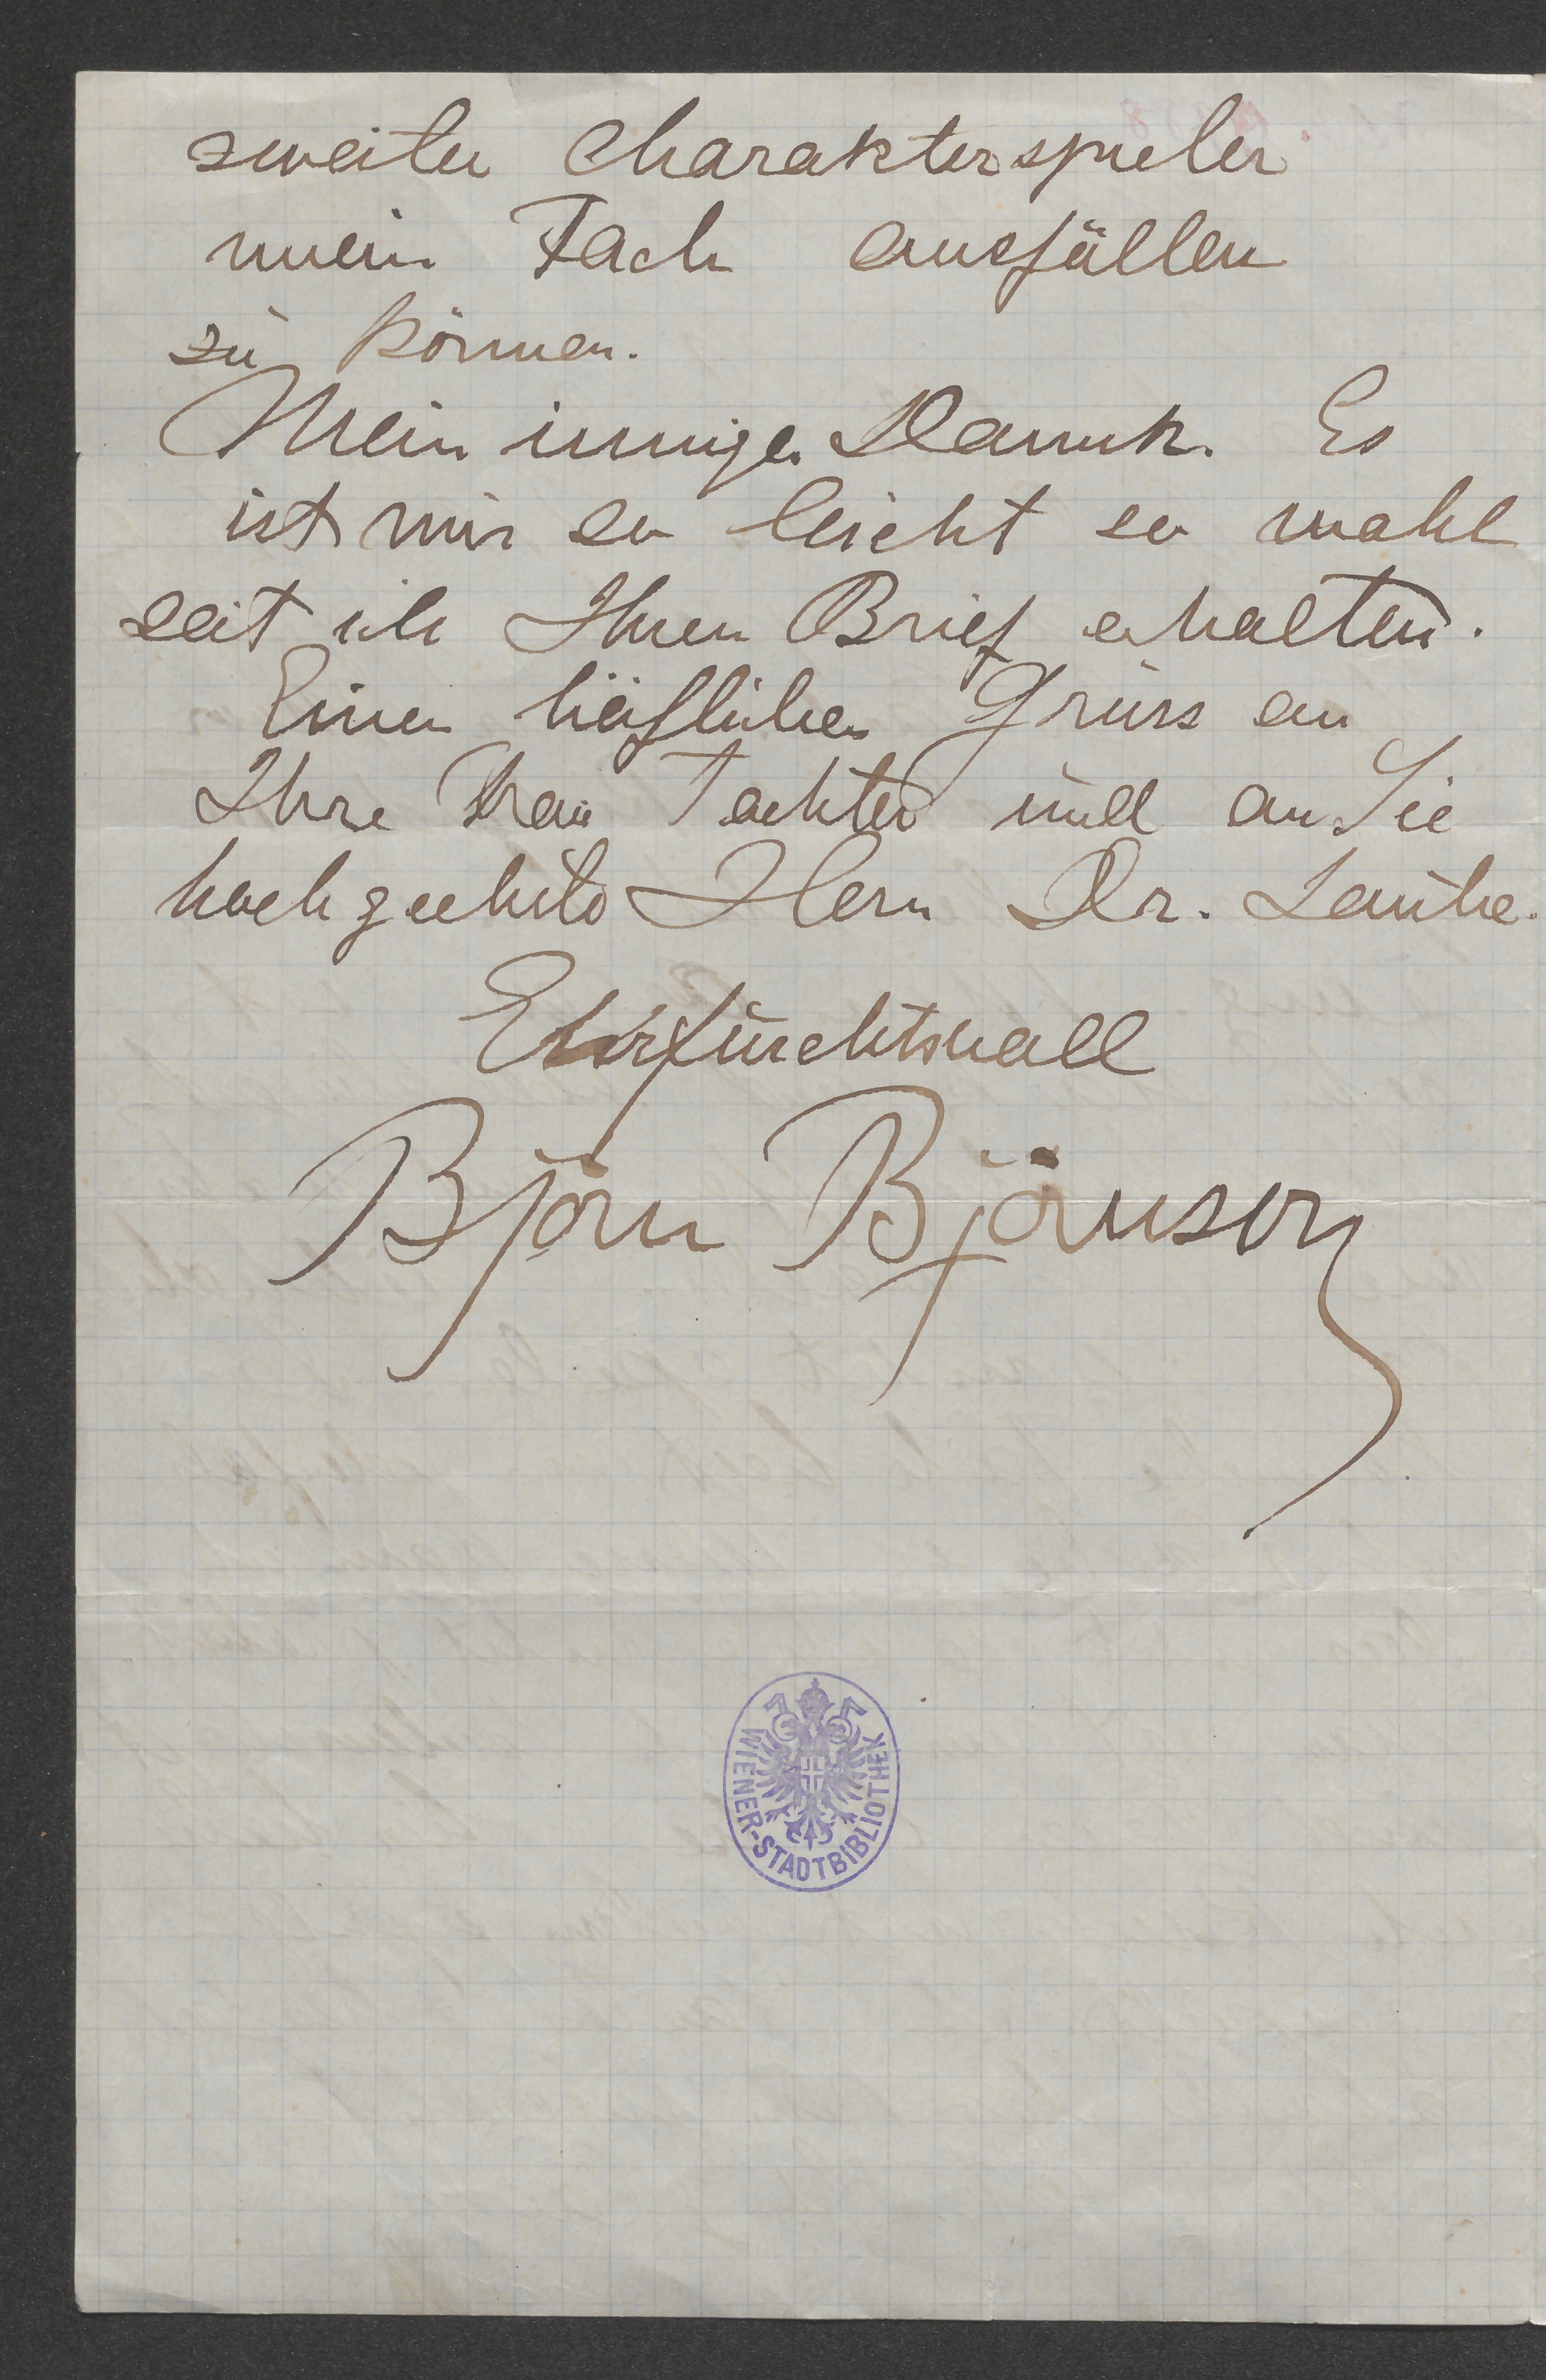 zweiter Charakterspieler
mein Fach ausfüllen
zu können.
Mein inniger Dannk. Es
ist mir so leicht so wohl
seit ich Ihren Brief erhalten.
Einen höflichen Gruss an
Ihre Frau Tochter und an Sie
hochgeehrter Herrn Dr. Laube.
Ehrfurchtsvoll
Björn Björnson
WIENER-STADTBIBLIOTHEK